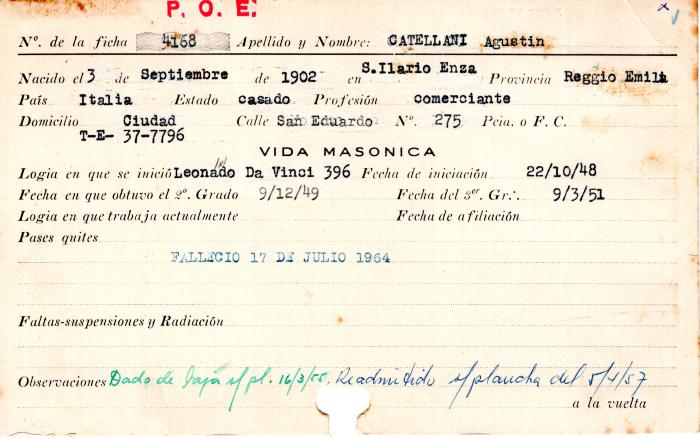 P. O. E.
Nº. de la ficha 4168 Apellido y Nombre: CATELLANI Agustin
Nacido el 3 de Septiembre de 1902 en S.Ilario Enza Provincia Reggio Emilia
País Italia Estado casado Profesión comerciante
Domicilio Ciudad Calle San Eduardo Nº. 275 Pcia. o F. C.
T-E- 37-7796
VIDA MASONICA
Logia en que se inició Leonado Da Vinci 396 Fecha de iniciación 22/10/48
Fecha en que obtuvo el 2º. Grado 9/12/49 Fecha del 3er. Gr∴. 9/3/51
Logia en que trabaja actualmente Fecha de afiliación
Pases quites
FALLECIO 17 DE JULIO 1964
Faltas-suspensiones y Radiación
Observaciones Dado de baja s/pl. 16/3/55. Readmitido s/plancha del 5/4/57
a la vuelta